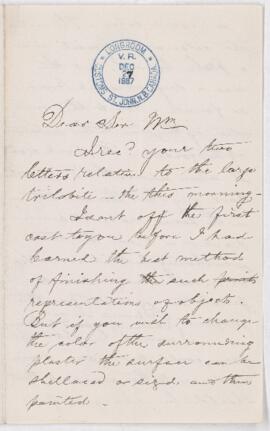 LONGROOM
V.R.
DEC
27
1887
CUSTOMS ST. JOHN, N.B. CANADA
Dear Sir Wm
I rec'd your two
letters relative to the large
trilobite - the this morning -
I sent off the first
cast to you before I had
learned the best method
of finishing the such
representations of objects.
But if you wish to change
the color of the surrounding
plaster the surface can be
shellaced or sized and then
painted -